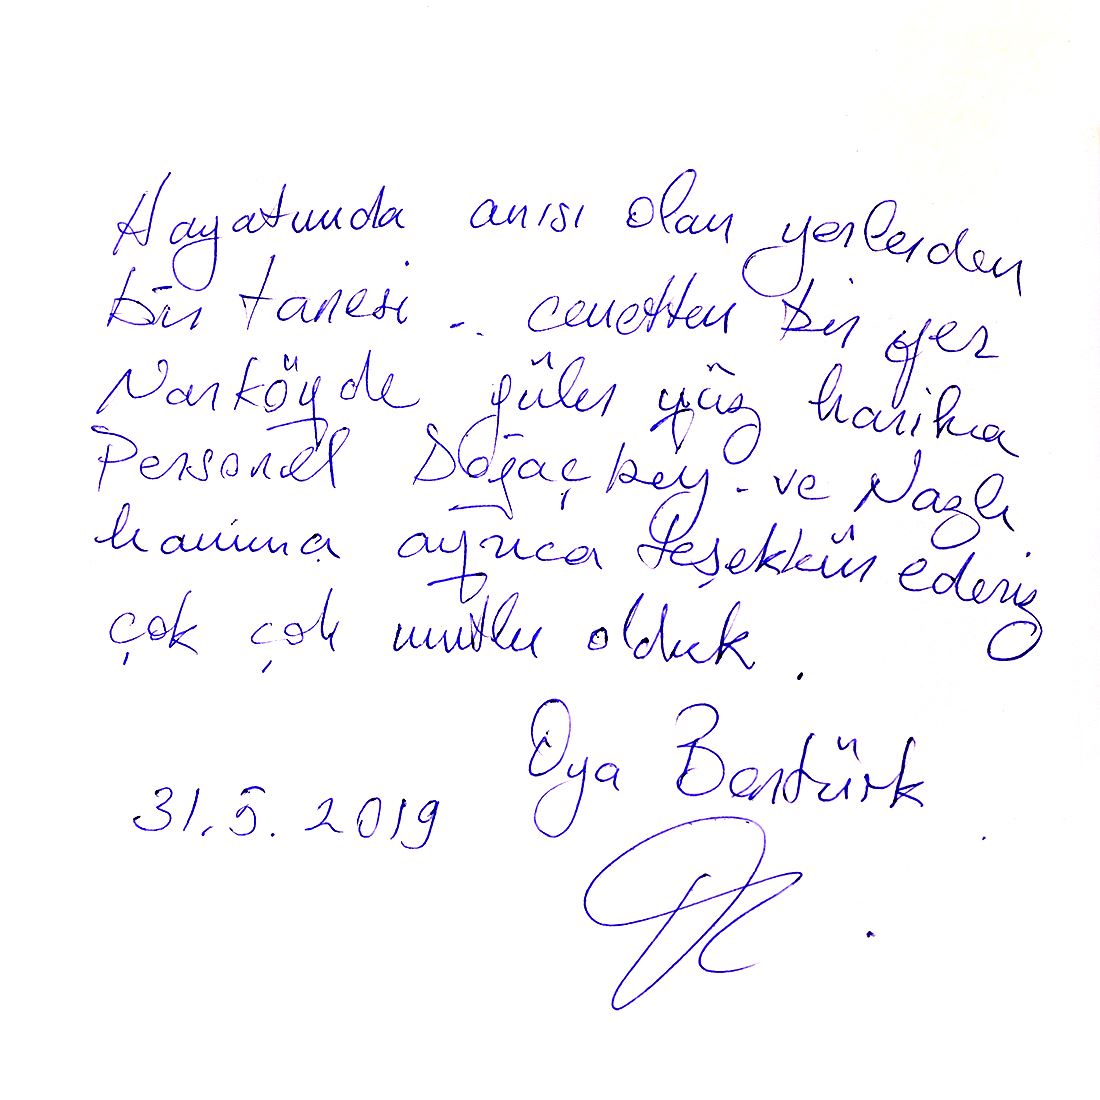 Hayatımda anısı olan yerlerden
bir tanesi -.. cenetten bir yer
Narköyde güler yüz harika
Personel Doğaç bey - ve Nazlı
hanıma ayrıca teşekkür ederiz
çok çok mutlu olduk.
Oya Bentürk
31.5.2019